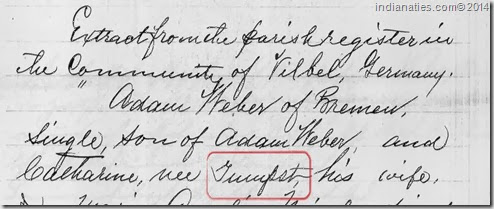 indianaties.com©2014
Extract from the parish register in
the "Community of Vilbel, Germany.
Adam Weber of Bremen,
single, son of Adam Weber, and
Catharine, nee his wife,